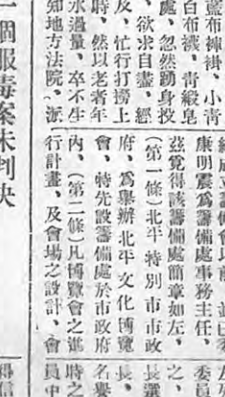 藍布褲褂、小青
白布襪、青緞皂
處、忽然踴身投
、欲求自盡、經
、忙行打撈上
時、然以老者年
水過量、卒不生
知地方法院、派
一個服毒案未判决
康明震爲籌備處事務主任、
茲覓得該籌備處簡章如左、
(第一條)北平特別市市政
府、爲舉辦北平文化博覽
會、特先設籌備處於市政府
內、(第二條)凡博覽會之進
行計畫、及會場之設計、會
委員
之、
長選
長、
名譽
時之
員中